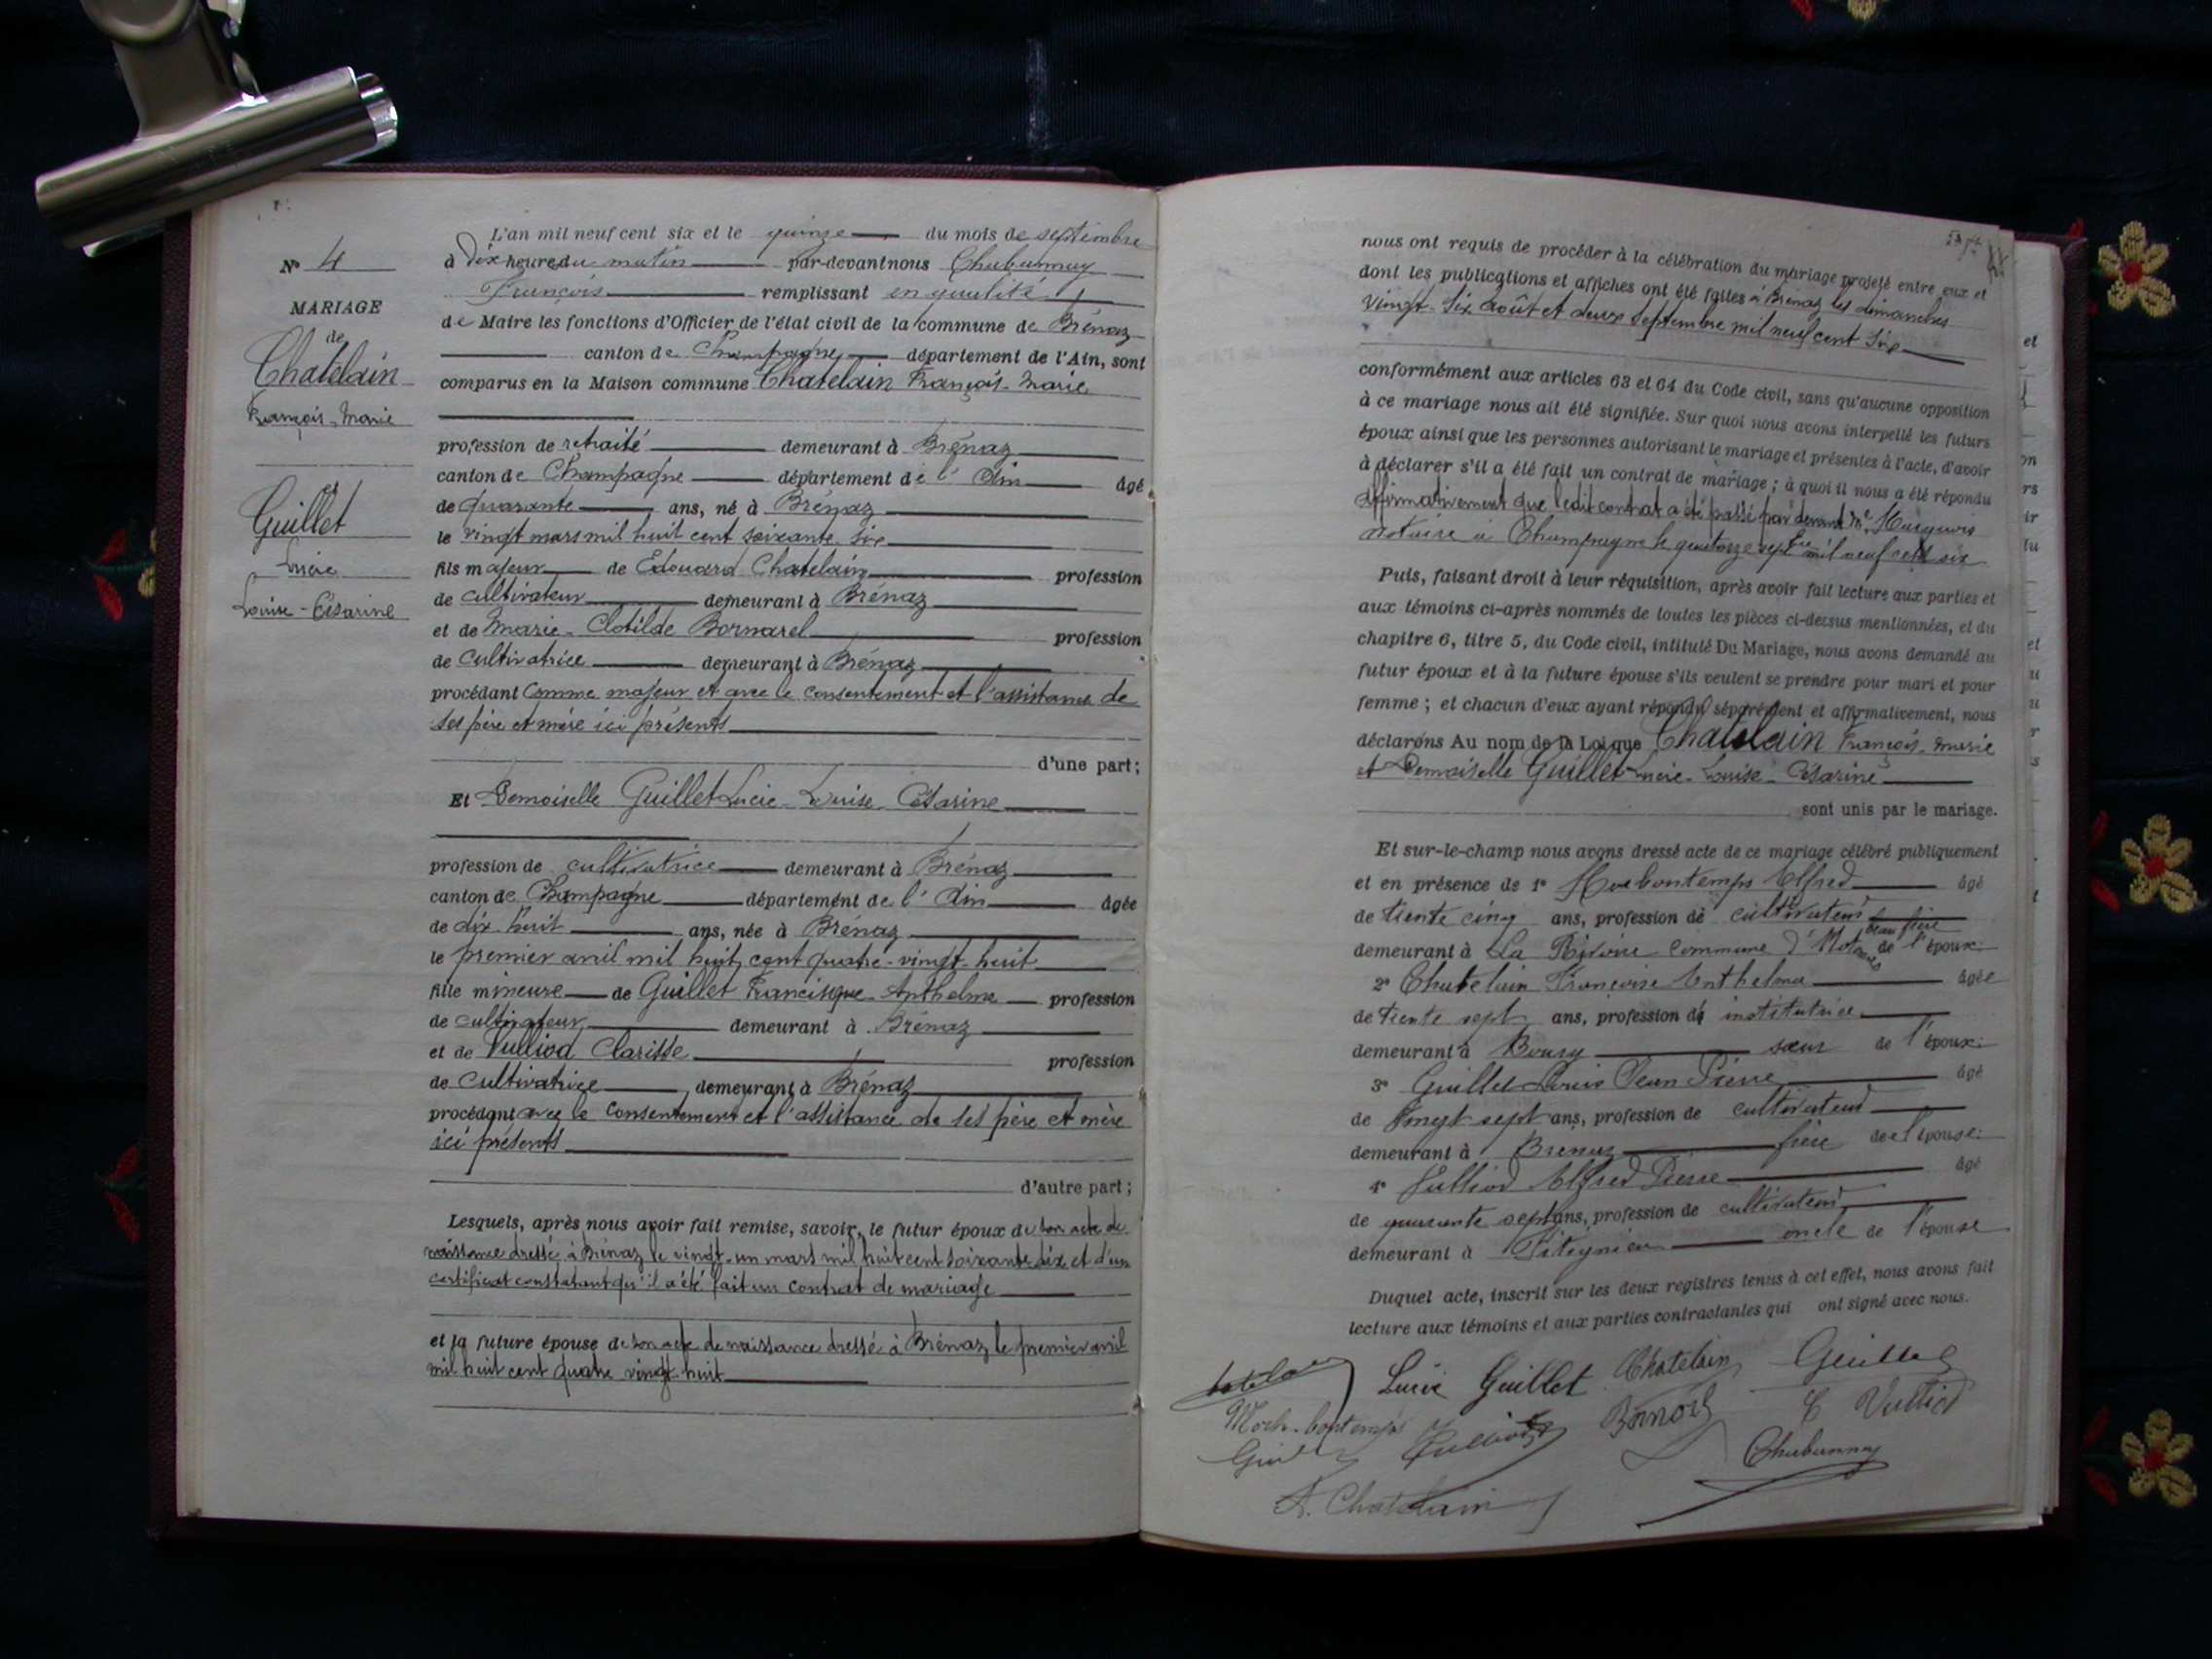 L'an mil neuf cent six et le quinze du mois de septembre
N° 4
à dix heure du matin par-devant nous Chabannay
François remplissant en qualité
MARIAGE
de Maire les fonctions d'Officier de l'état civil de la commune de Brénaz
de
canton de Champagne département de l'Ain, sont
Chatelain
comparus en la Maison commune Chatelain François-Marie
François-Marie
profession de retraité demeurant à Brénaz
canton de Champagne département de l'Ain âgé
et
de quarante ans, né à Brénaz
Guillet
le vingt mars mil huit cent soixante six
Lucie
fils majeur de Edouard Chatelain profession
Louise-Césarine
de cultivateur demeurant à Brénaz
et de Marie-Clotilde Bornarel profession
de cultivatrice demeurant à Brénaz
procédant comme majeur et avec le consentement et l'assistance de
ses père et mère ici présents
d'une part;
Et Demoiselle Guillet Lucie-Louise-Césarine
profession de cultivatrice demeurant à Brénaz
canton de Champagne département de l'Ain âgée
de dix-huit ans, née à Brénaz
le premier avril mil huit cent quatre-vingt-huit
fille mineure de Guillet Francisque-Anthelme profession
de cultivateur demeurant à Brénaz
et de Vulliod Clarisse profession
de cultivatrice demeurant à Brénaz
procédant avec le consentement et l'assistance de ses père et mère
ici présents
d'autre part;
Lesquels, après nous avoir fait remise, savoir, le futur époux de son acte de
naissance dressé à Brénaz le vingt-un mars mil huit cent soixante six et d'un
certificat constatant qu'il a été fait un contrat de mariage
et la future épouse de son acte de naissance dressé à Brénaz le premier avril
mil huit cent quatre vingt-huit
nous ont requis de procéder à la célébration du mariage projeté entre eux et
dont les publications et affiches ont été faites à Brénaz les dimanches
vingt-six août et deux septembre mil neuf cent six
conformément aux articles 63 et 64 du Code civil, sans qu'aucune opposition
à ce mariage nous ait été signifiée. Sur quoi nous avons interpellé les futurs
époux ainsi que les personnes autorisant le mariage et présentes à l'acte, d'avoir
à déclarer s'il a été fait un contrat de mariage; à quoi il nous a été répondu
affirmativement que ledit contrat a été passé par devant Me
notaire à Champagne le quatorze septbre mil neuf cent six
Puis, faisant droit à leur réquisition, après avoir fait lecture aux parties et
aux témoins ci-après nommés de toutes les pièces ci-dessus mentionnées, et du
chapitre 6, titre 5, du Code civil, intitulé Du Mariage, nous avons demandé au
futur époux et à la future épouse s'ils veulent se prendre pour mari et pour
femme; et chacun d'eux ayant répondu séparément et affirmativement, nous
déclarons Au nom de la Loi que Chatelain François-Marie
et Demoiselle Guillet Lucie-Louise-Césarine
sont unis par le mariage.
Et sur-le-champ nous avons dressé acte de ce mariage célébré publiquement
et en présence de 1° Alfred âgé
de trente cinq ans, profession de cultivateur
beau frère
demeurant à La commune d' de l'époux:
2° Chatelain Françoise Anthelma âgée
de trente sept ans, profession de institutrice
demeurant à Bourg sœur de l'époux:
3° Guillet Louis Jean Pierre âgé
de vingt sept ans, profession de cultivateur
demeurant à Brenaz frère de l'épouse:
4° Vulliod Alfred Pierre âgé
de quarante sept ans, profession de cultivateur
demeurant à oncle de l'épouse
Duquel acte, inscrit sur les deux registres tenus à cet effet, nous avons fait
lecture aux témoins et aux parties contractantes qui ont signé avec nous.
Lucie Guillet Chatelain Guillet
C Vulliod
Chabannay
A. Chatelain